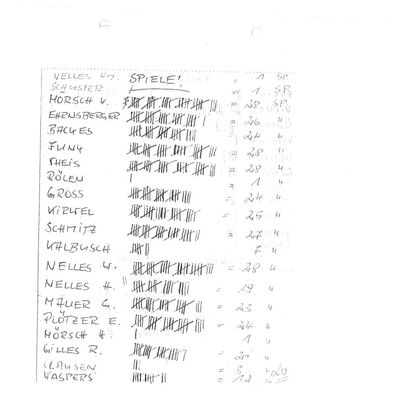 NELLES Hj. SPIELE! = 1 SP.
SCHUSTER = 1 SP.
MÖRSCH K. = 28 SP.
EHRNSBERGER = 26 "
BACKES = 24 "
FUNK = 28 "
THEIS = 28 "
RÖLEN 1 "
GROSS = 24 "
= 25 "
SCHMITZ = 27 "
KALBUSCH 7 "
NELLES W. = 28 "
NELLES H. = 19 "
MAUER G. = 23 "
PLÖTZER E. = 24 "
MÖRSCH H. 1 "
GILLES R. = "
CLAUSEN = 3 "
KASPERS = "